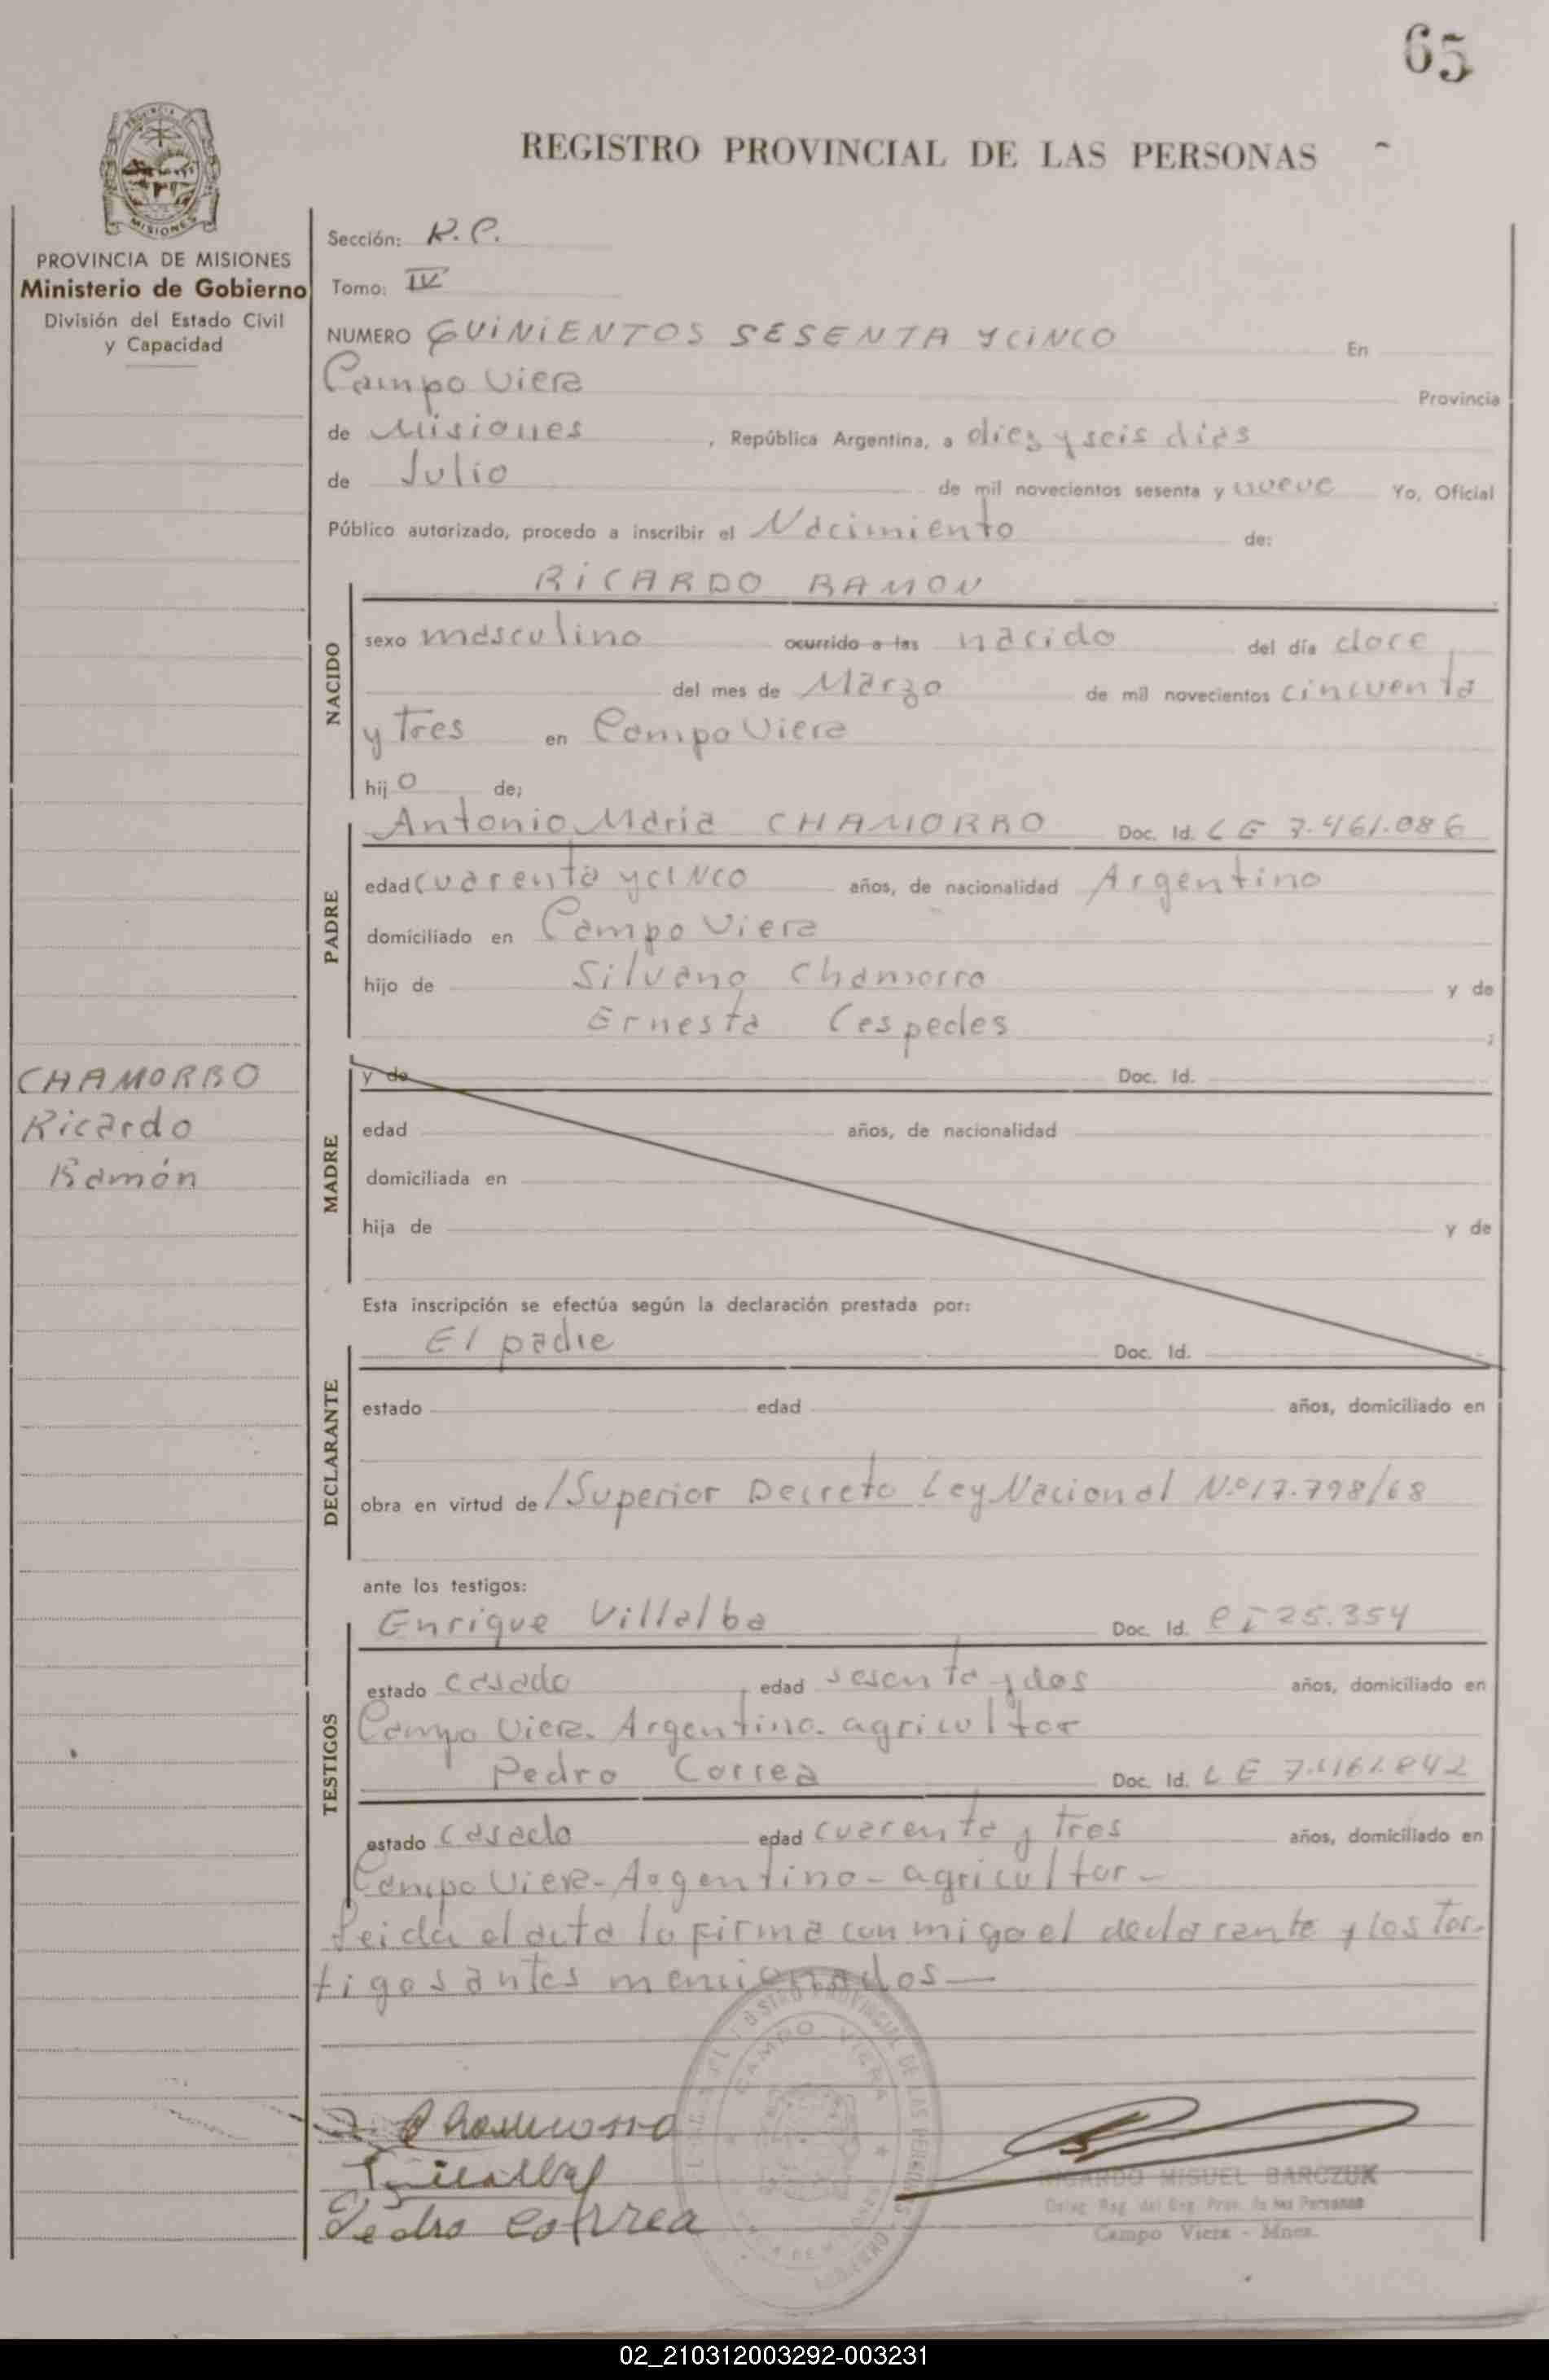 65
REGISTRO PROVINCIAL DE LAS PERSONAS
MISIONES
PROVINCIA DE MISIONES
Ministerio de Gobierno
División del Estado Civil
y Capacidad
Sección: R.P.
Tomo: IV
NUMERO QUINIENTOS SESENTA Y CINCO En
Campo Viera Provincia
de Misiones , República Argentina, a diez y seis dias
de Julio de mil novecientos sesenta y nueve Yo, Oficial
Público autorizado, procedo a inscribir el Nacimiento de:
RICARDO RAMON
NACIDO
sexo masculino ocurrido a las nacido del día doce
del mes de Marzo de mil novecientos cincuenta
y tres en Campo Viera
hijo de;
PADRE
Antonio Maria CHAMORRO Doc. Id. LE 7.461.086
edad cuarenta y cinco años, de nacionalidad Argentino
domiciliado en Campo Viera
hijo de Silvano Chamorro y de
Ernesta Cespedes ;
CHAMORRO
Ricardo
Ramón
MADRE
y de Doc. Id.
edad años, de nacionalidad
domiciliada en
hija de y de
Esta inscripción se efectúa según la declaración prestada por:
DECLARANTE
El padre Doc. Id.
estado edad años, domiciliado en
obra en virtud de /Superior Decreto Ley Nacional N.º 17.798/68
ante los testigos:
TESTIGOS
Enrique Villalba Doc. Id. CI 25.354
estado casado edad sesenta y dos años, domiciliado en
Campo Viera. Argentino. agricultor
Pedro Correa Doc. Id. LE 7.461.842
estado casado edad cuarenta y tres años, domiciliado en
Campo Viera - Argentino - agricultor -
Leida el acta la firma con migo el declarante y los tes-
tigos antes mencionados —
CAMPO VIERA
Chamorro
Villalba
Pedro Correa
RICARDO MIGUEL BARCZUK
Campo Viera - Mnes.
02_210312003292-003231